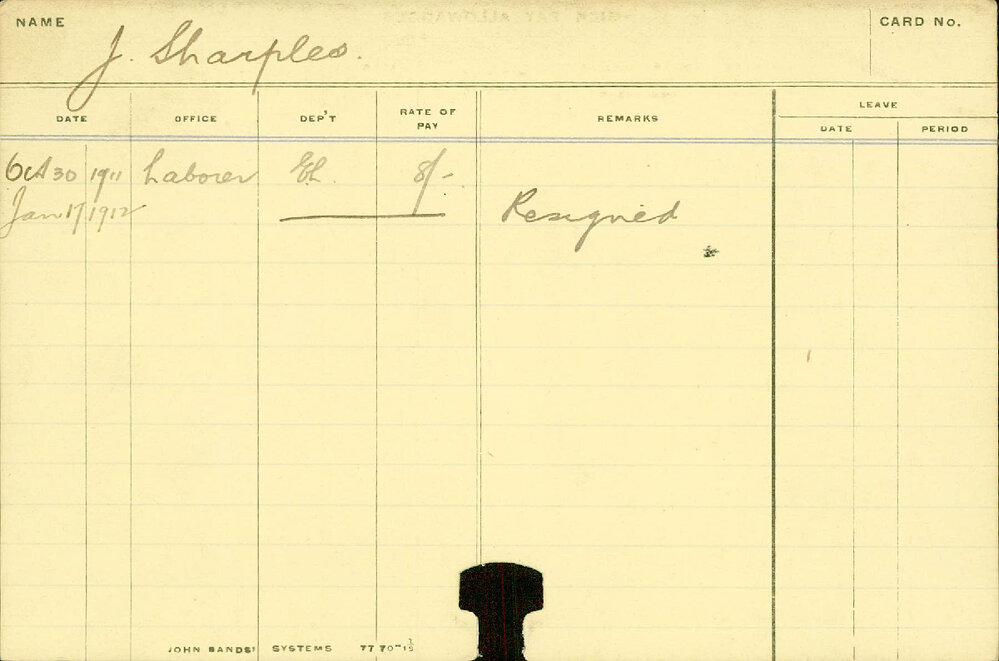 NAME J. Sharples. CARD No.
DATE OFFICE DEP'T RATE OF PAY REMARKS LEAVE
DATE PERIOD
Oct 30 1911 Laborer El. 8/-
Jan 17 1912 Resigned
JOHN SANDS' SYSTEMS 77 70